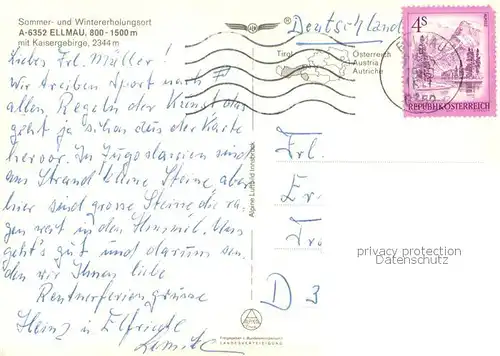 Sommer- und Wintererholungsort
A-6352 ELLMAU, 800-1500 m
mit Kaisergebirge, 2344 m
Deutschland
Tirol
Österreich
Austria
Autriche
4S
REPUBLIK ÖSTERREICH
Liebes Frl. Müller!
Wir treiben Sport nach
allen Regeln der Kunst, das
geht ja schon aus der Karte
hervor. In Jugoslawien sind
am Strand kleine Steine, aber
hier sind grosse Steine die ra-
gen weit in den Himmel. Uns
geht's gut und darum sen-
den wir Ihnen liebe
Rentnerferiengrüsse
Heinz u Elfriede
Alpine Luftbild Innsbruck
Frl.
Er.
D 3
privacy protection
watermark
Freigegeben v. Bundesministerium f.
LANDESVERTEIDIGUNG